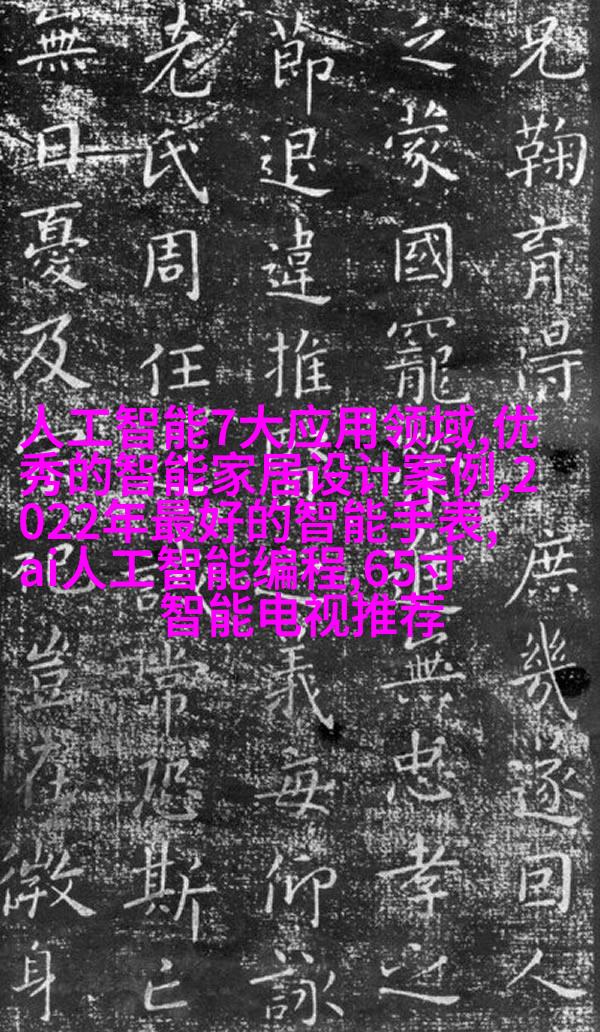 兄鞠育得庶幾遂回人
之蒙國寵無忠孝之
節退違推義每仰詠
老氏周任常恐斯亡
無日憂及豈在微身
人工智能7大应用领域,优
秀的智能家居设计案例,2
022年最好的智能手表,
ai人工智能编程,65寸
智能电视推荐